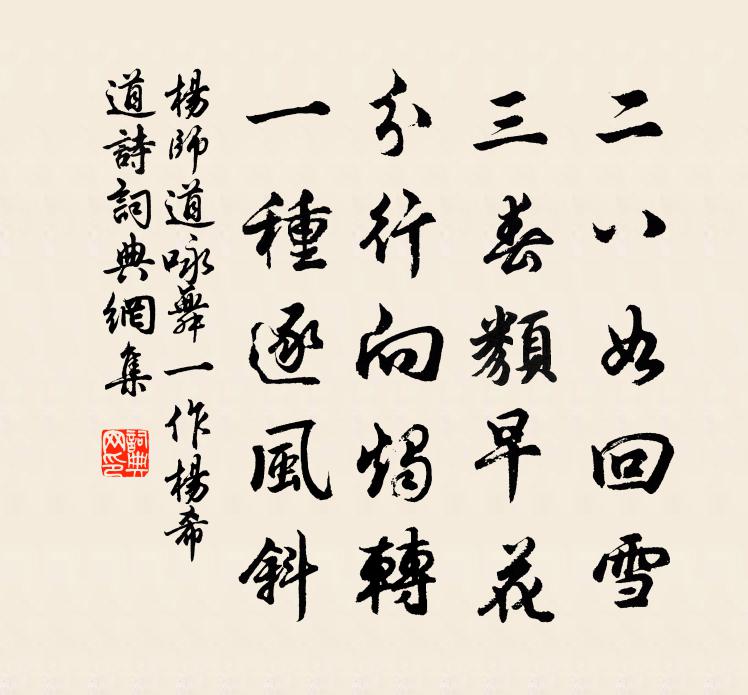 二八如回雪
三春類早花
分行向燭轉
一種逐風斜
楊師道咏舞一作楊希
道詩詞典網集
詞典
网印